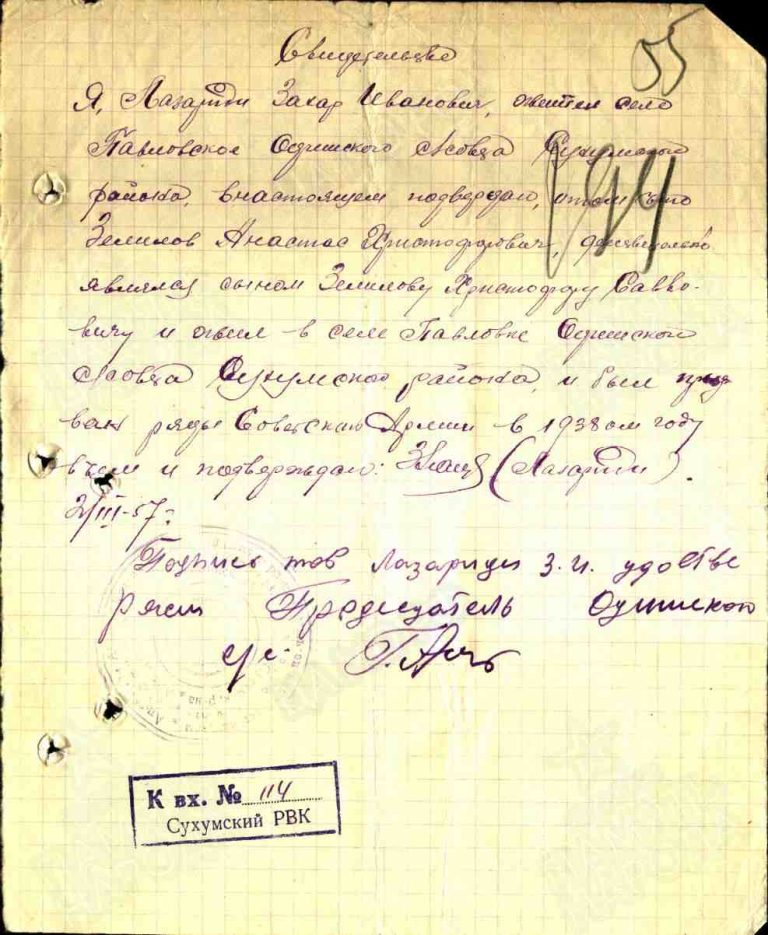 Свидетельство
55
Я, Лазариди Захар Иванович, житель село
Павловское Одишского с/совета Сухумского
района, в настоящем подверждаю, в том что
Зелилов Анастас Христофорович, действительно
являлся сыном Зелилову Христофору Савво-
вичу и жил в селе Павловке Одишского
с/совета Сухумского района, и был приз
ван ряды Советской Армии в 1938 ом году
в чем и подтверждаю: (Лазариди).
2/III-57г
Подпись тов Лазариди З. И. удостве
ряет Председатель Одишского
с/с.
К вх. № 114
Сухумский РВК